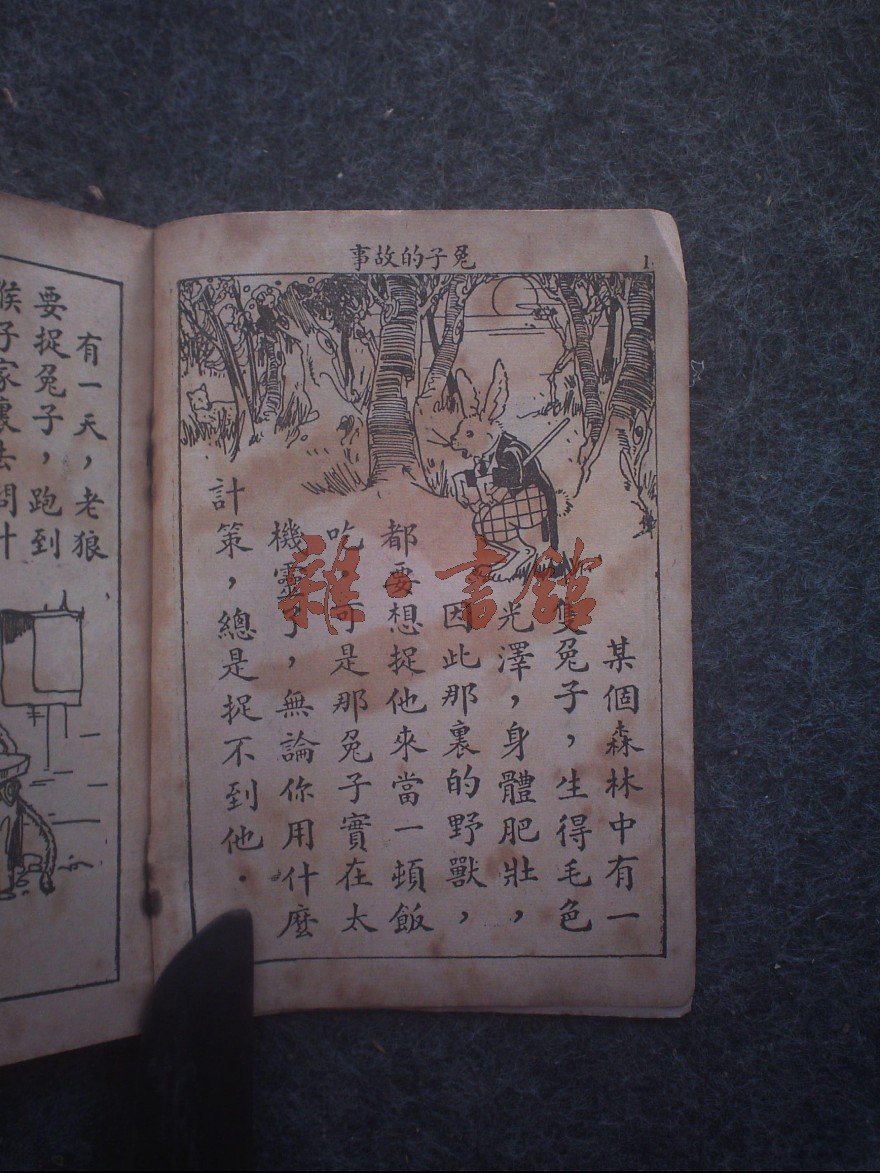 兔子的故事
1
某個森林中有一
隻兔子，生得毛色
光澤，身體肥壯，
因此那裏的野獸，
都要想捉他來當一頓飯
吃，可是那兔子實在太
機靈了，無論你用什麼
計策，總是捉不到他．
有一天，老狼，
要捉兔子，跑到
猴子家裏去問計
雜·書館